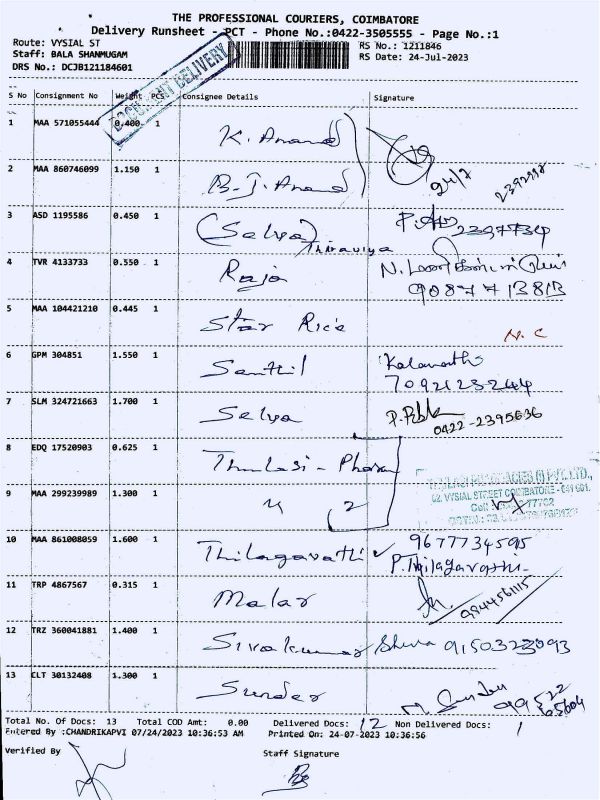 THE PROFESSIONAL COURIERS, COIMBATORE
Delivery Runsheet - PCT - Phone No.:0422-3505555 - Page No.:1
Route: VYSIAL ST
Staff: BALA SHANMUGAM
DRS No.: DCJB121184601
RS No.: 1211846
RS Date: 24-Jul-2023
DOCUMENT DELIVERY
S No Consignment No Weight PCS Consignee Details Signature
1 MAA 571055444 0.400 1 K. Anand
24/7 2392998
2 MAA 860746099 1.150 1 B-J. Anand
3 ASD 1195586 0.450 1 (Selva) 2397734
4 TVR 4133733 0.550 1 Raja
9087713813
5 MAA 104421210 0.445 1 Star Rice N.C
6 GPM 304851 1.550 1 Senthil
7092123244
7 SLM 324721663 1.700 1 Selva
0422-2395636
8 EDQ 17520903 0.625 1 Thulasi - Pharm
9 MAA 299239989 1.300 1 " 2
VYSIAL STREET COIMBATORE
10 MAA 861008059 1.600 1 Thilagavathi ✓ 9677734595
P. Thilagavathi
11 TRP 4867567 0.315 1 Malar
9844561115
12 TRZ 360041881 1.400 1 Sivakumar Shiva 9150323093
13 CLT 30132408 1.300 1 Sunder M. Sundar
99522 65604
Total No. Of Docs: 13 Total COD Amt: 0.00 Delivered Docs: 12 Non Delivered Docs: 1
Entered By :CHANDRIKAPVI 07/24/2023 10:36:53 AM Printed On: 24-07-2023 10:36:56
Verified By Staff Signature